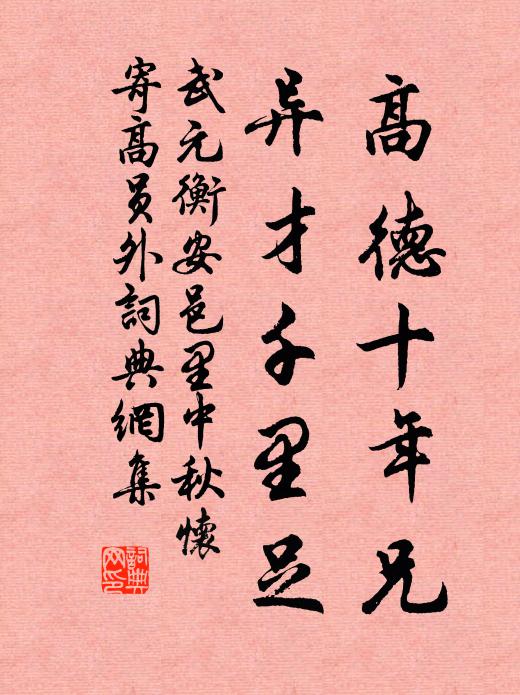 高德十年兄
异才千里足
武元衡安邑里中秋懷
寄高員外詞典網集
詞典
网印